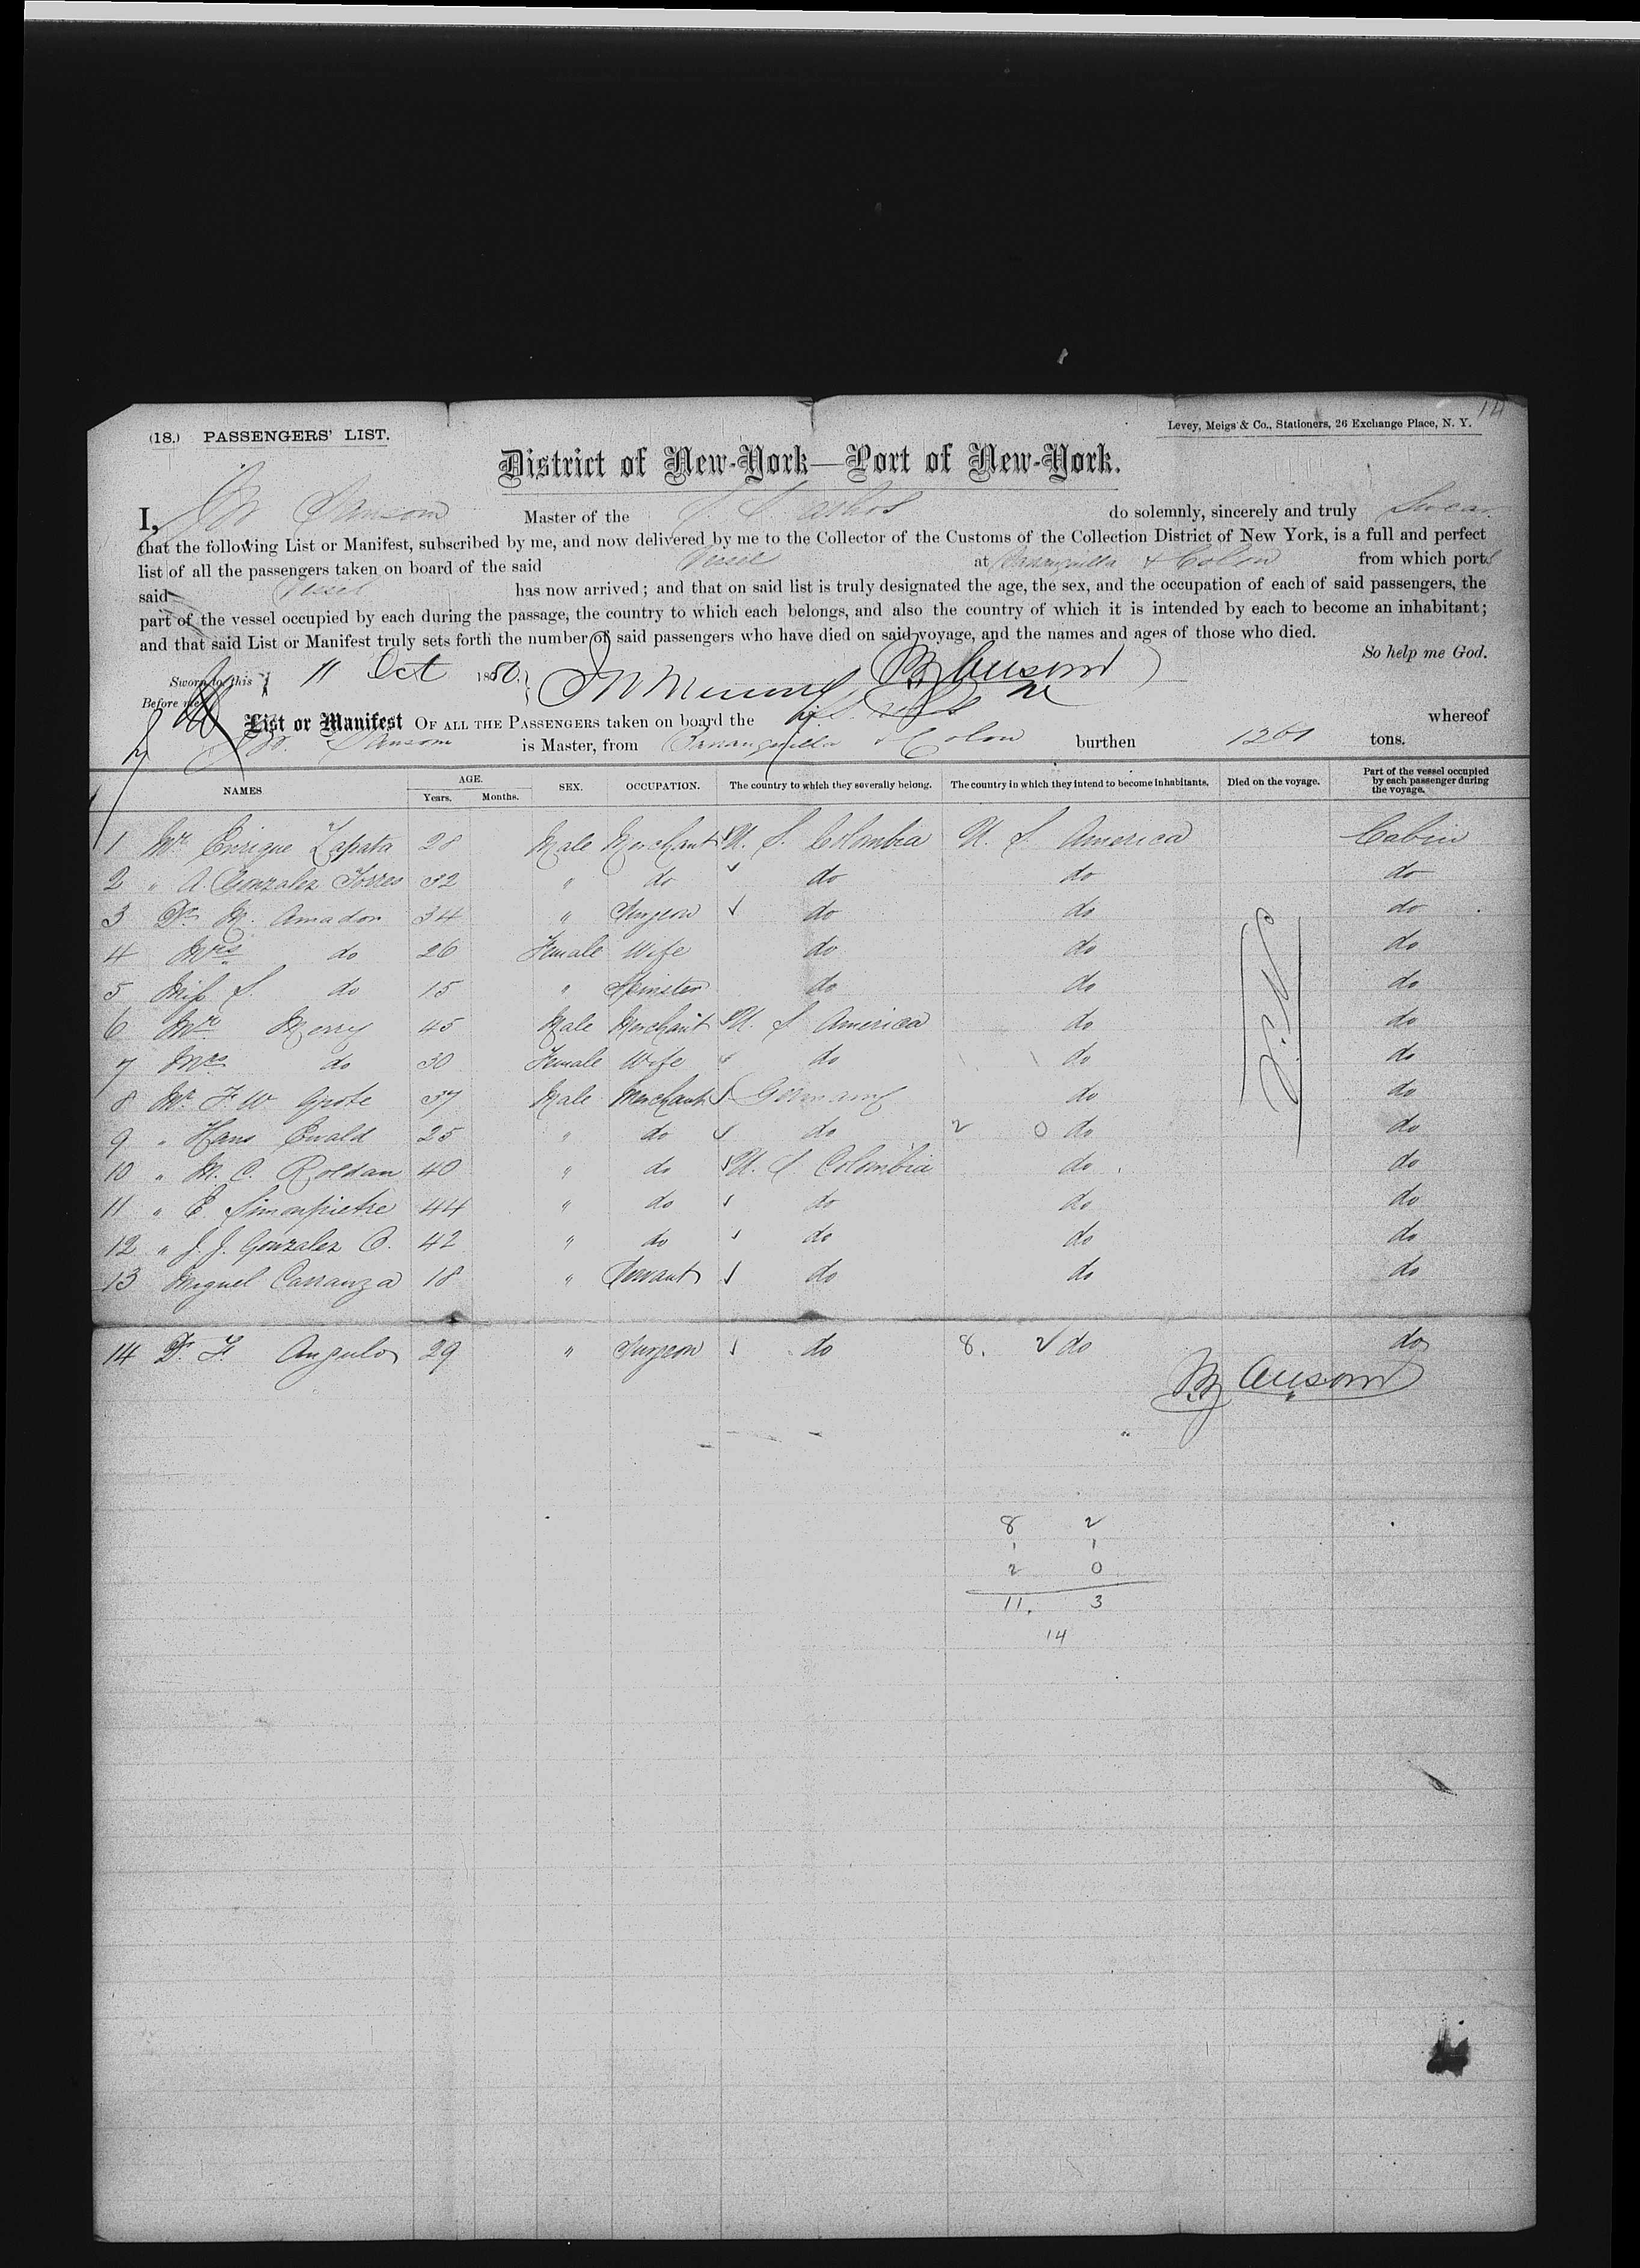 14
(18.) PASSENGERS' LIST.
Levey, Meigs & Co., Stationers, 26 Exchange Place, N. Y.
District of New-York—Port of New-York.
I, Sansom Master of the S. S. Athos do solemnly, sincerely and truly Swear
that the following List or Manifest, subscribed by me, and now delivered by me to the Collector of the Customs of the Collection District of New York, is a full and perfect
list of all the passengers taken on board of the said Vessel at Barranquilla & Colon from which ports
said Vessel has now arrived; and that on said list is truly designated the age, the sex, and the occupation of each of said passengers, the
part of the vessel occupied by each during the passage, the country to which each belongs, and also the country of which it is intended by each to become an inhabitant;
and that said List or Manifest truly sets forth the number of said passengers who have died on said voyage, and the names and ages of those who died.
So help me God.
Sworn to this 11 Oct 1880.
Before me
List or Manifest OF ALL THE PASSENGERS taken on board the whereof
Sansom is Master, from Barranquilla & Colon burthen tons.
NAMES AGE. Years. Months. SEX. OCCUPATION. The country to which they severally belong. The country in which they intend to become inhabitants. Died on the voyage. Part of the vessel occupied by each passenger during the voyage.
1 Mr Enrique Zapata 28 Male Merchant U. S. Colombia U. S. America Cabin
2 " A. Gonzalez Torres 32 " do do do do
3 Dr M. Amador 34 " Surgeon do do do
4 Mrs do 26 Female Wife do do do
5 Miss S. do 15 " Spinster do do do
6 Mr Merry 45 Male Merchant U. S America do do
7 Mrs do 30 Female Wife do do do
8 Mr F W Grote 37 Male Merchant Germany do do
9 " Hans Ewald 25 " do do 2 0 do do
10 " M. C. Roldan 40 " do U. S Colombia do do
11 " E Simonpietre 44 " do do do do
12 " J. J. Gonzalez C. 42 " do do do do
13 Miguel Carranza 18 " Servant do do do
14 Dr F. Angulo 29 " Surgeon do 8. 2 do do
8 2
1 1
2 0
11. 3
14